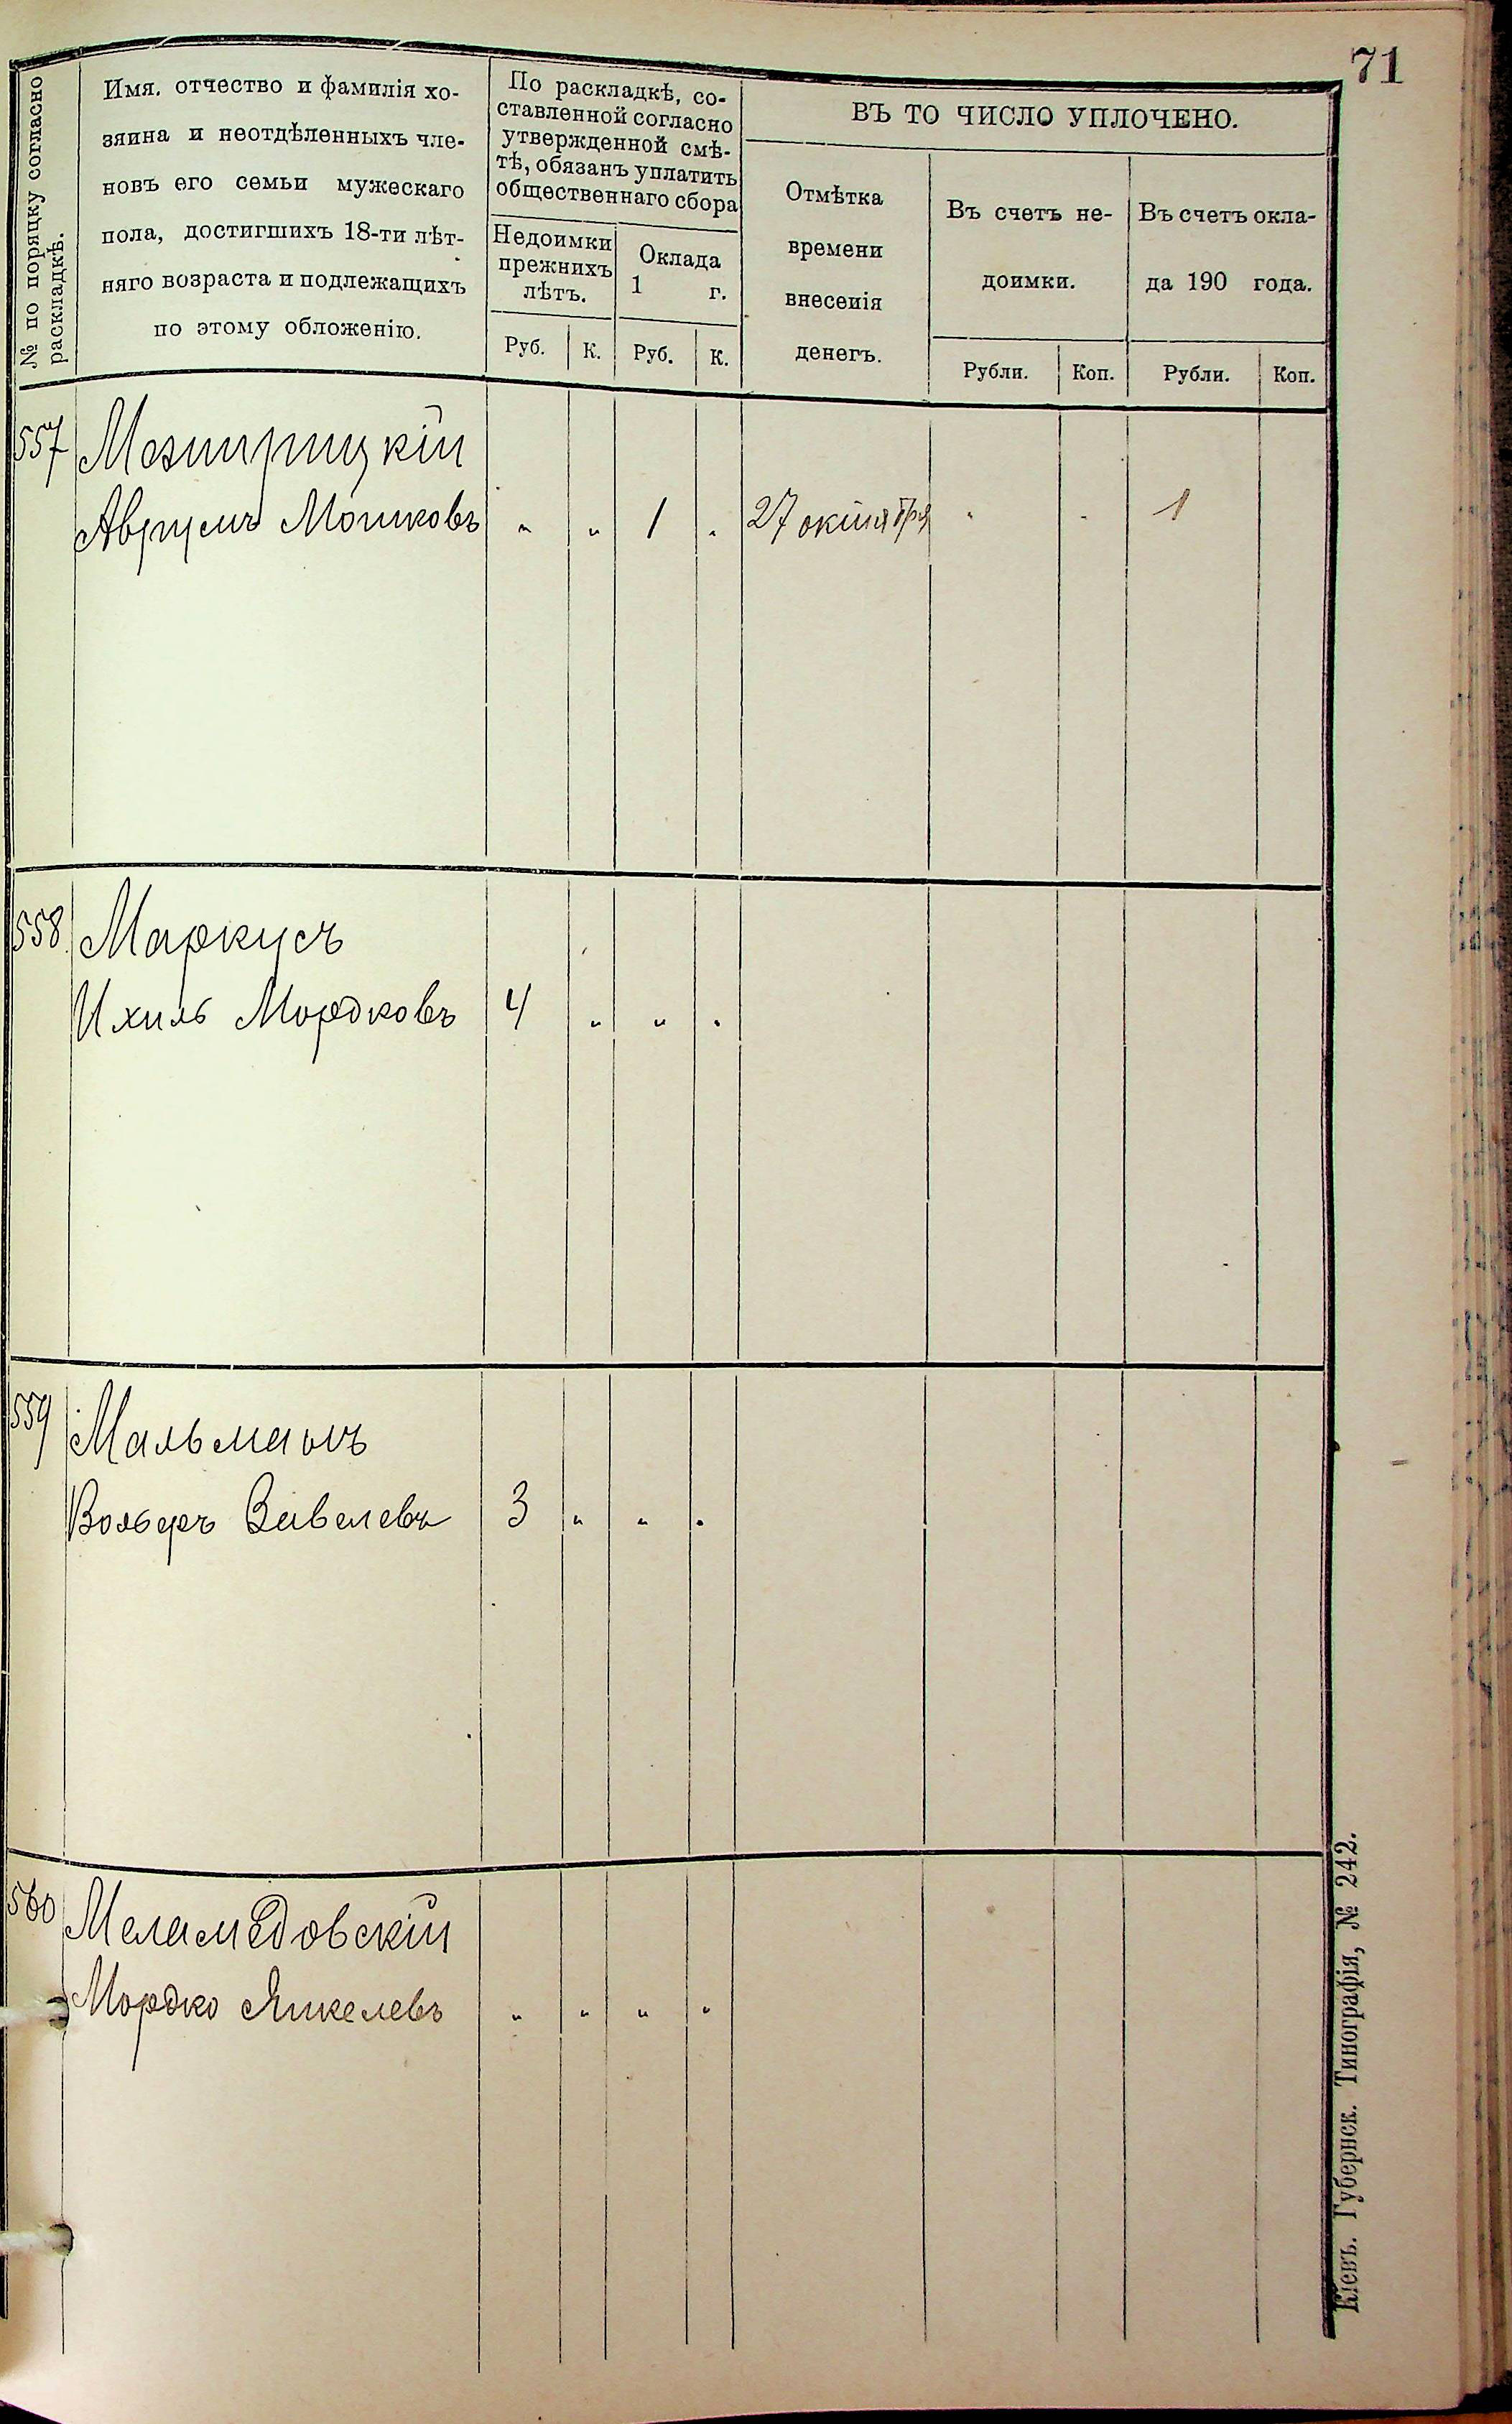 71
№ по поряцку согласно
раскладкѣ.
Имя. отчество и фамилія хо-
зяина и неотдѣленныхъ чле-
новъ его семьи мужескаго
пола, достигшихъ 18-ти лѣт-
няго возраста и подлежащихъ
по этому обложенію.
По раскладкѣ, со-
ставленной согласно
утвержденной смѣ-
тѣ, обязанъ уплатить
общественнаго сбора
Недоимки
прежнихъ
лѣтъ.
Оклада
1 г.
Руб. К. Руб. К.
ВЪ ТО ЧИСЛО УПЛОЧЕНО.
Отмѣтка
времени
внесенія
денегъ.
Въ счетъ не-
доимки.
Въ счетъ окла-
да 190 года.
Рубли. Коп. Рубли. Коп.
557 Мезирицкій
Аврумъ Мошковъ " " 1 " 27 октября " " 1
558 Маркусъ
Ихиль Мордковъ 4 " " "
559 Мальманъ
Вольфъ Завелевъ 3 " " "
560 Меламедовскій
Мордко Янкелевъ " " " "
Кіевъ. Губернск. Типографія, № 242.